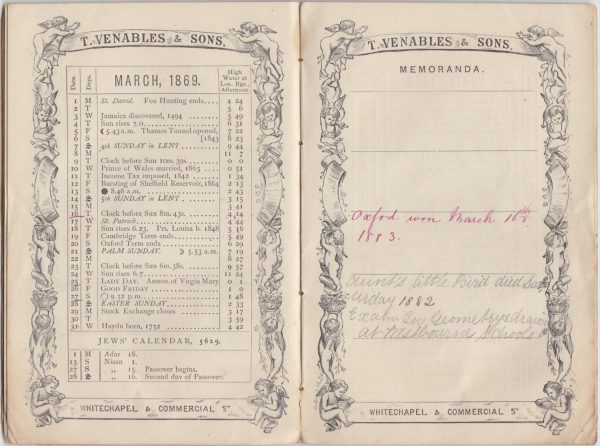 T. VENABLES & SONS.
MARCH, 1869.
Dates. Days. High Water at Lon. Bge., Afternoon.
1 M St. David. Fox Hunting ends 4 24
2 T 5 6
3 W Jamaica discovered, 1494 5 49
4 T Sun rises 7.0 6 31
5 F ☾ 5.43 a.m. Thames Tunnel opened, 7 22
6 S [1843 8 23
7 S 4th SUNDAY IN LENT 9 49
8 M 11 7
9 T Clock before Sun 10m. 39s. 0 0
10 W Prince of Wales married, 1863 0 51
11 T Income Tax imposed, 1842 1 34
12 F Bursting of Sheffield Reservoir, 1864 2 13
13 S ● 8.46 a.m. 2 45
14 S 5th SUNDAY IN LENT 3 15
15 M 3 41
16 T Clock before Sun 8m. 43s. 4 14
17 W St. Patrick 4 44
18 T Sun rises 6.23. Prs. Louisa b. 1848 5 16
19 F Cambridge Term ends 5 49
20 S Oxford Term ends 6 29
21 S PALM SUNDAY. ☽ 5.53 a.m. 7 19
22 M 8 27
23 T Clock before Sun 6m. 38s. 9 57
24 W Sun rises 6.7 11 24
25 T LADY DAY. Annun. of Virgin Mary 0 1
26 F GOOD FRIDAY 1 0
27 S ○ 9.32 p.m. 1 48
28 S EASTER SUNDAY 2 33
29 M Stock Exchange closes 3 17
30 T 3 59
31 W Haydn born, 1732 4 42
JEWS' CALENDAR, 5629.
1 M Adar 18.
13 S Nisan 1.
27 S „ 15. Passover begins.
28 S „ 16. Second day of Passover.
WHITECHAPEL & COMMERCIAL ST
T. VENABLES & SONS.
MEMORANDA.
Oxford won March 16th
1883.
Aunt's little Bird died Sat
urday 1882
Exam. In Geometry & drawing
at Melbourne Schools.
WHITECHAPEL & COMMERCIAL ST